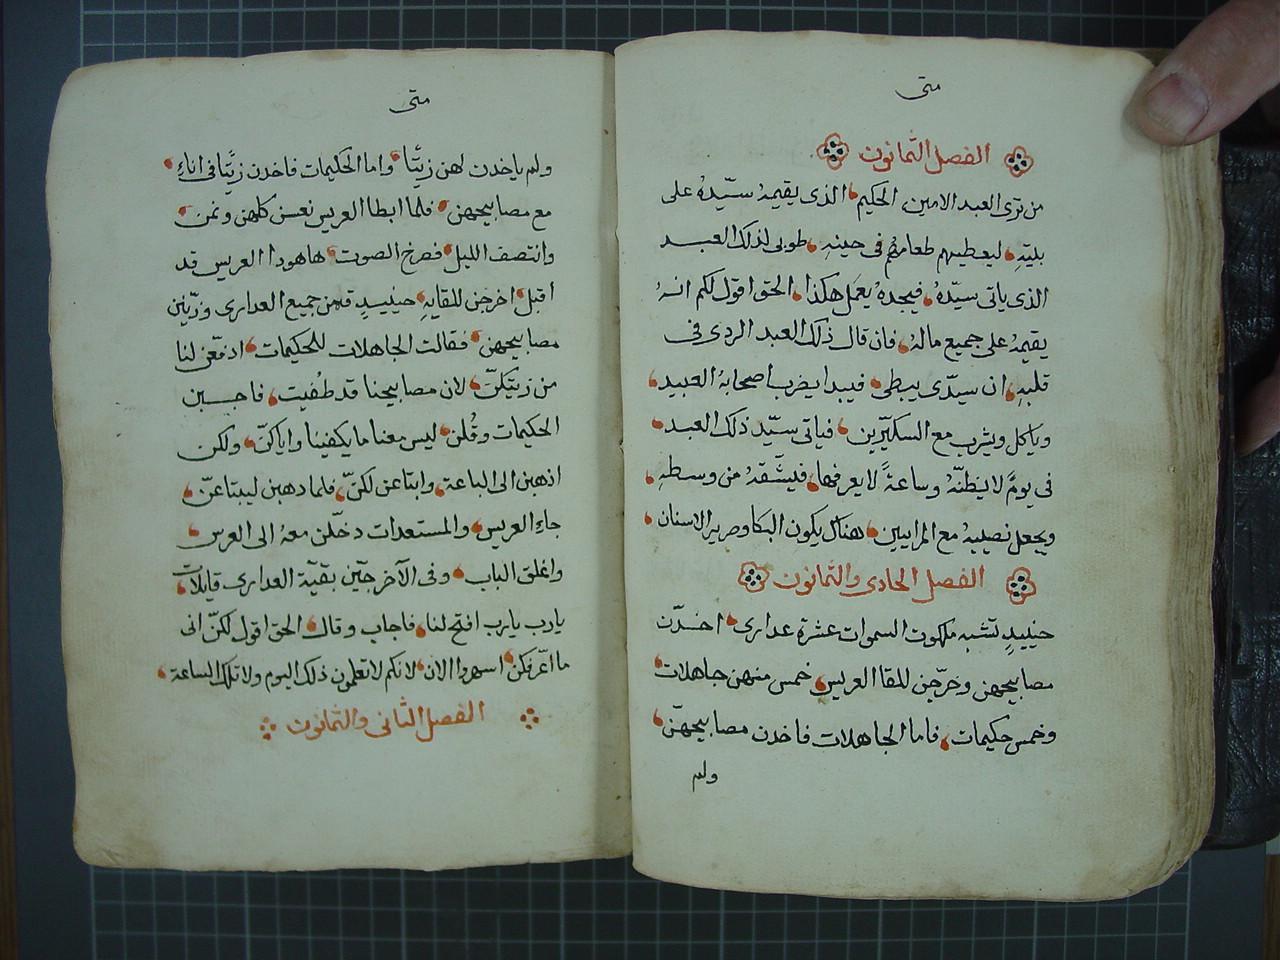 متى
الفصل الثمانون
من ترى العبد الامين الحكيم الذى يقيمهُ سيّدهُ على
بيتهِ ليعطيهم طعامهُم فى حينهِ طوبى لذلك العبـد
الذى ياتى سيّدهُ فيجدهُ يعمل هكذا الحق اقول لكم انـهُ
يقيمهُ على جميع مالهُ فان قال ذلك العبد الردى فى
قلبهِ ان سيدّى يبطى فيبدا يضرب اصحابهُ العبيد
وياكل ويشرب مع السكيّرين فياتى سيّد ذلك العبد
فى يومً لا يظنّهُ وساعةً لا يعرفها فيشّقهُ من وسطهِ
ويجعل نصيبهُ مع المرايين هناك يكون البكا وصرير الاسنان
الفصل الحادى والثمانون
حينيدٍ تشبه ملكوت السموات عشرة عدارى اخـدّت
مصابيحهن وخرّجن للقا العريس خمس منهن جاهلات
وخمس حكيمات فاما الجاهلات فاخدن مصابيحهنّ
ولم
متى
ولم ياخدن لهن زيتًا واما الحكيمات فاخدن زيتًا فى اناءِ
مع مصابيحهن فلما ابطا العريس نعسن كلهن ونمن
وانتصف الليل فصرخ الصوت هاهودا العريس قد
اقبل اخرجن للقايهِ حينيدٍ قمن جميع العدارى وزيّنن
مصابيحهن فقالت الجاهلات للحكيمات ادفعّن لنا
من زيتكنّ لان مصابيحنا قد طُفيت فاجـبـن
الحكيمات وقُلن ليس معنا ما يكفينا واياكنّ ولكن
اذهبن الى الباعة وابتاعن لكنّ فلما دهبن ليبتاعنّ
جاءِ العريس والمستعدات دخّلن معهُ الى العرس
واغلق الباب وفى الآخر جيّن بقيّة العدارى قايلات
يارب يارب افتح لنا فاجاب وقال الحق اقول لكنّ انى
ما اعّرفكن اسهروا الان لانكم لا تعلمون ذلك اليوم ولا تلك الساعة
الفصل الثانى والثمانون